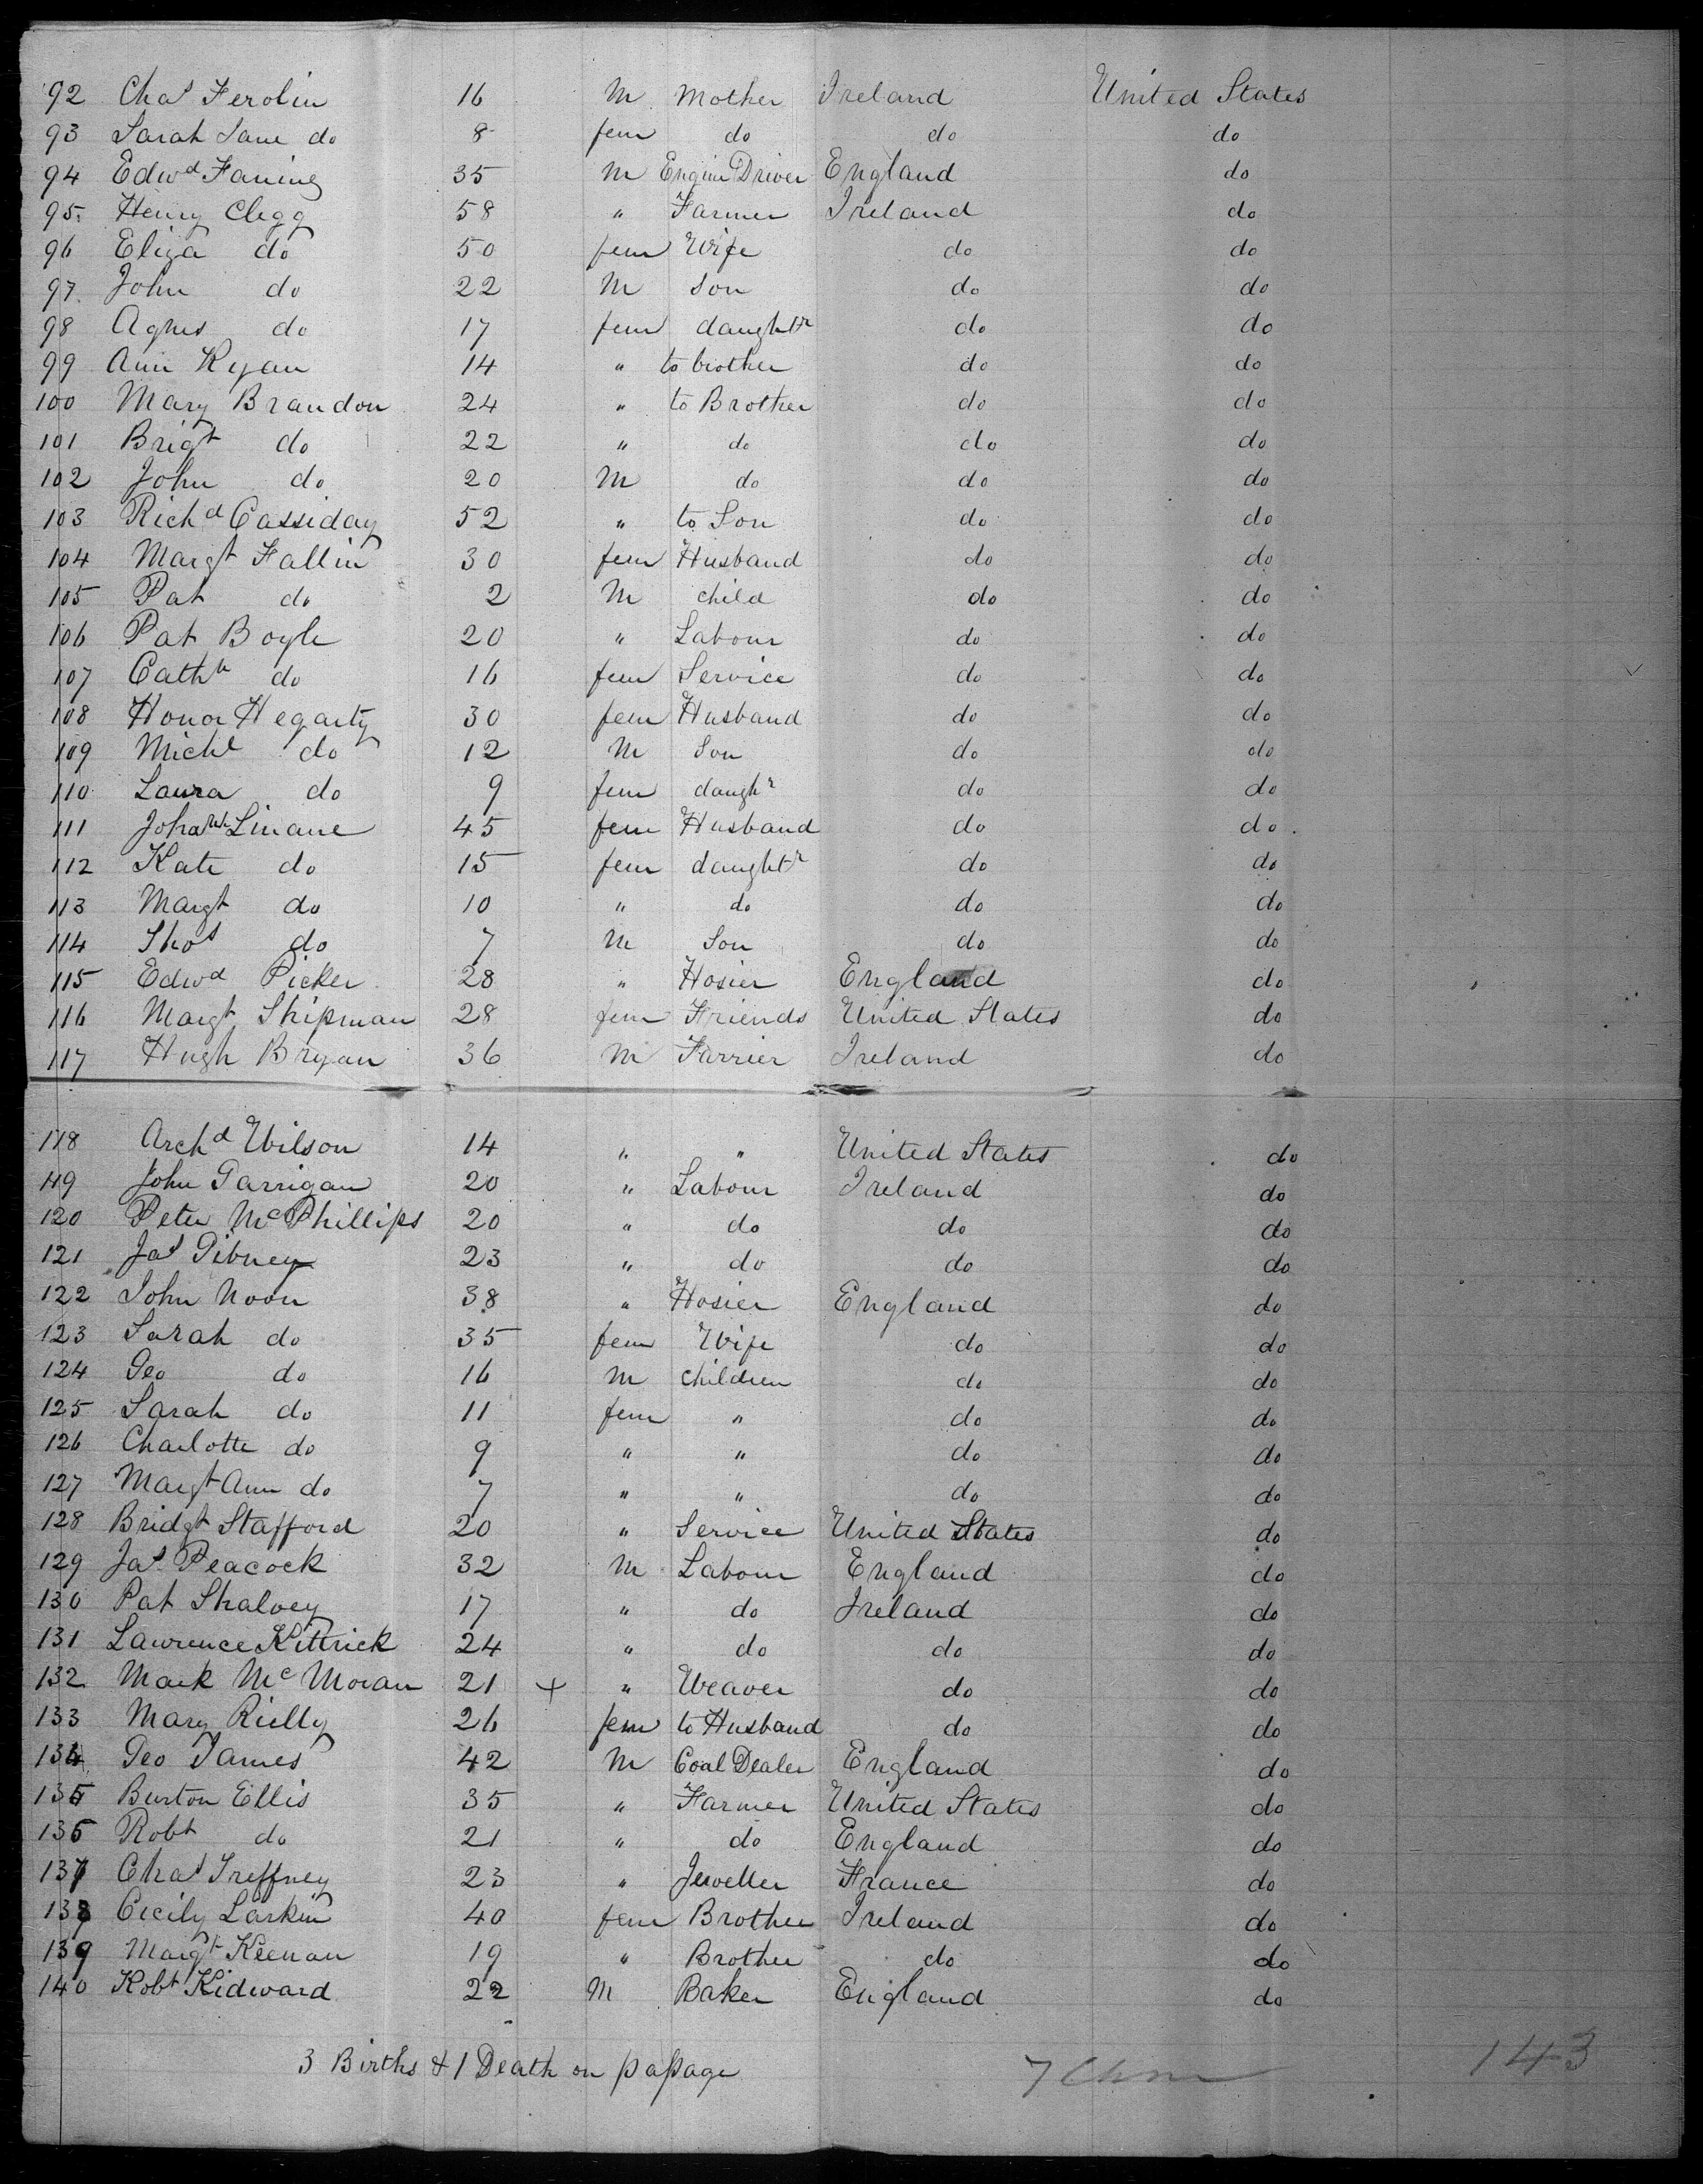 92 Chas Ferolin 16 M Mother Ireland United States
93 Sarah Jane do 8 fem do do do
94 Edwd Faning 35 M Engin Driver England do
95 Henry Clegg 58 " Farmer Ireland do
96 Eliza do 50 fem Wife do do
97 John do 22 M Son do do
98 Agnes do 17 fem daughtr do do
99 Ann Ryan 14 " to brother do do
100 Mary Brandon 24 " to Brother do do
101 Brigt do 22 " do do do
102 John do 20 M do do do
103 Richd Cassiday 52 " to Son do do
104 Margt Fallin 30 fem Husband do do
105 Pat do 2 M child do do
106 Pat Boyle 20 " Labour do do
107 Cathn do 16 fem Service do do
108 Honor Hegarty 30 fem Husband do do
109 Michl do 12 M Son do do
110 Laura do 9 fem daughr do do
111 Johanh Linane 45 fem Husband do do
112 Kate do 15 fem daughtr do do
113 Margt do 10 " do do do
114 Thos do 7 M Son do do
115 Edwd Picker 28 " Hosier England do
116 Margt Shipman 28 fem Friends United States do
117 Hugh Bryan 36 M Farrier Ireland do
118 Archd Wilson 14 " " United States do
119 John Garrigan 20 " Labour Ireland do
120 Peter McPhillips 20 " do do do
121 Jas Gibney 23 " do do do
122 John Noon 38 " Hosier England do
123 Sarah do 35 fem Wife do do
124 Geo do 16 M children do do
125 Sarah do 11 fem " do do
126 Charlotte do 9 " " do do
127 Margt Ann do 7 " " do do
128 Bridgt Stafford 20 " Service United States do
129 Jas Peacock 32 M Labour England do
130 Pat Shalvey 17 " do Ireland do
131 Lawrence Kittrick 24 " do do do
132 Mark Mc Moran 21 + " Weaver do do
133 Mary Rielly 26 fem to Husband do do
134 Geo James 42 M Coal Dealer England do
135 Burton Ellis 35 " Farmer United States do
136 Robt do 21 " do England do
137 Chas Treffney 23 " Jeweller France do
138 Cicily Larkin 40 fem Brother Ireland do
139 Margt Keenan 19 " Brother do do
140 Robt Kidward 22 M Baker England do
3 Births & 1 Death on paſsage 143